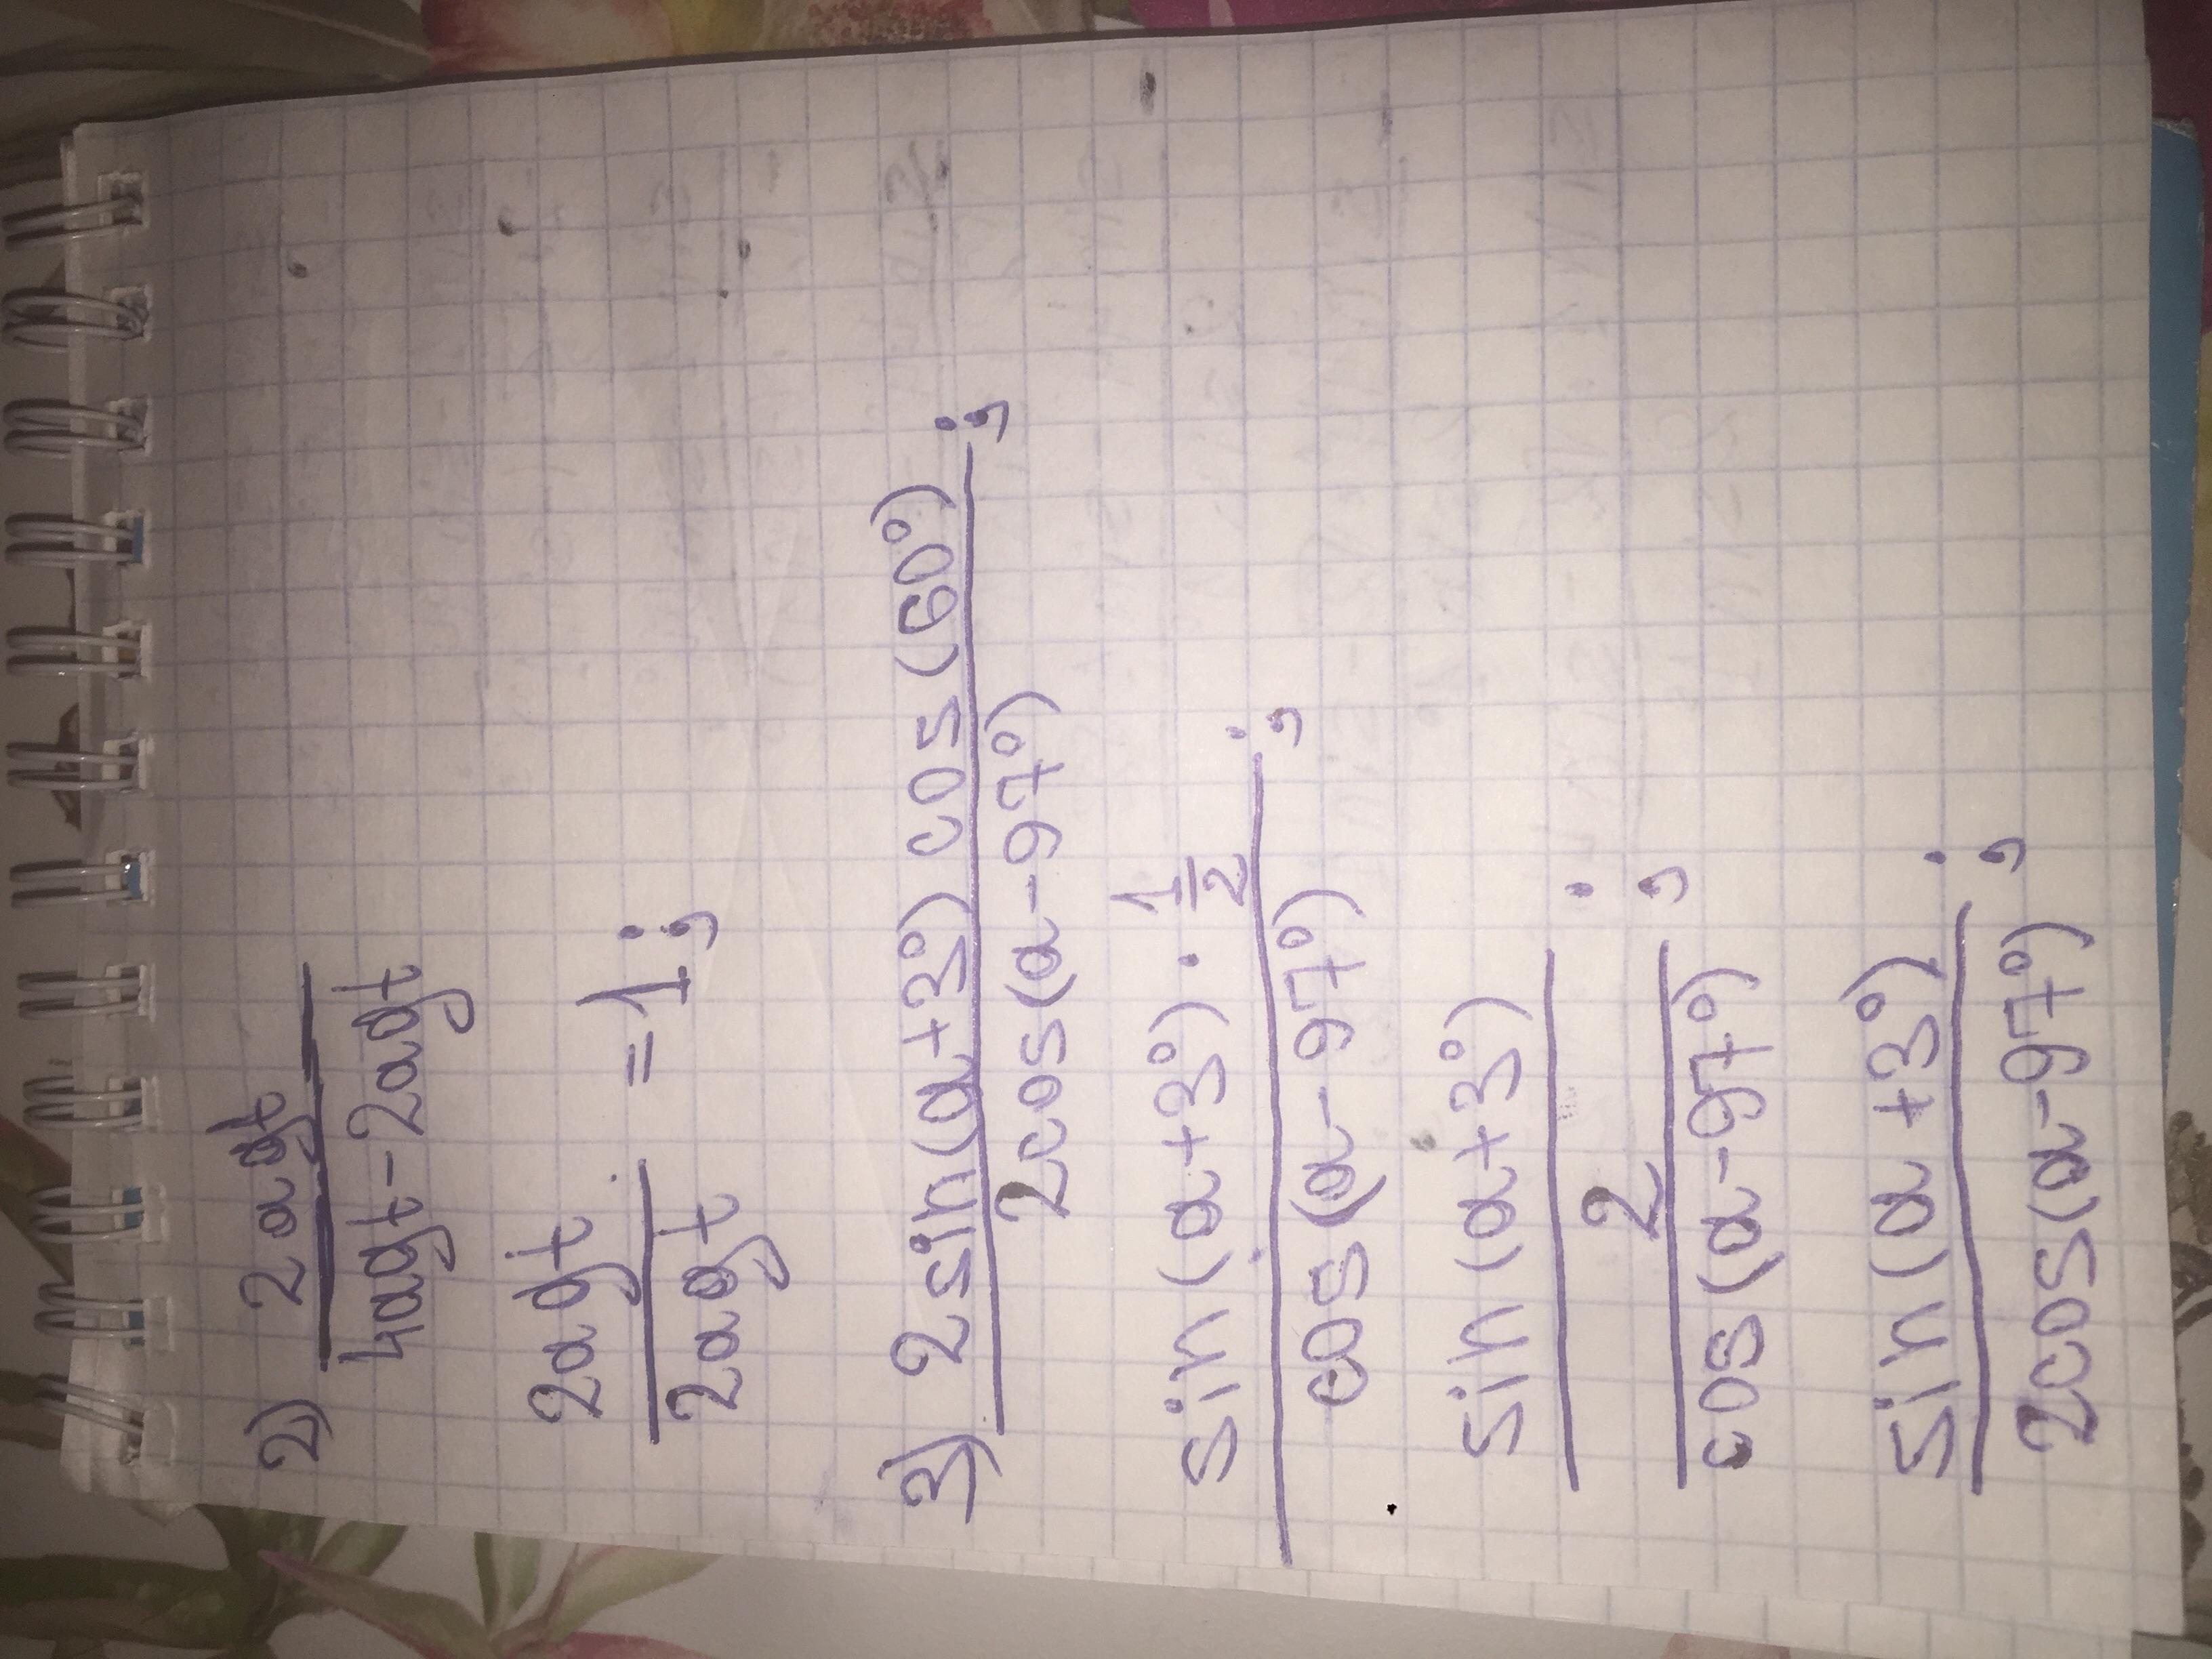 2) 2agt
4agt-2agt
2agt
2agt = 1;
3) 2sin(α+3°) cos(60°) ;
2cos(α-97°)
sin(α+3°) · 1/2 ;
cos(α-97°)
sin(α+3°)
2 ;
cos(α-97°)
sin(α+3°) ;
2cos(α-97°)